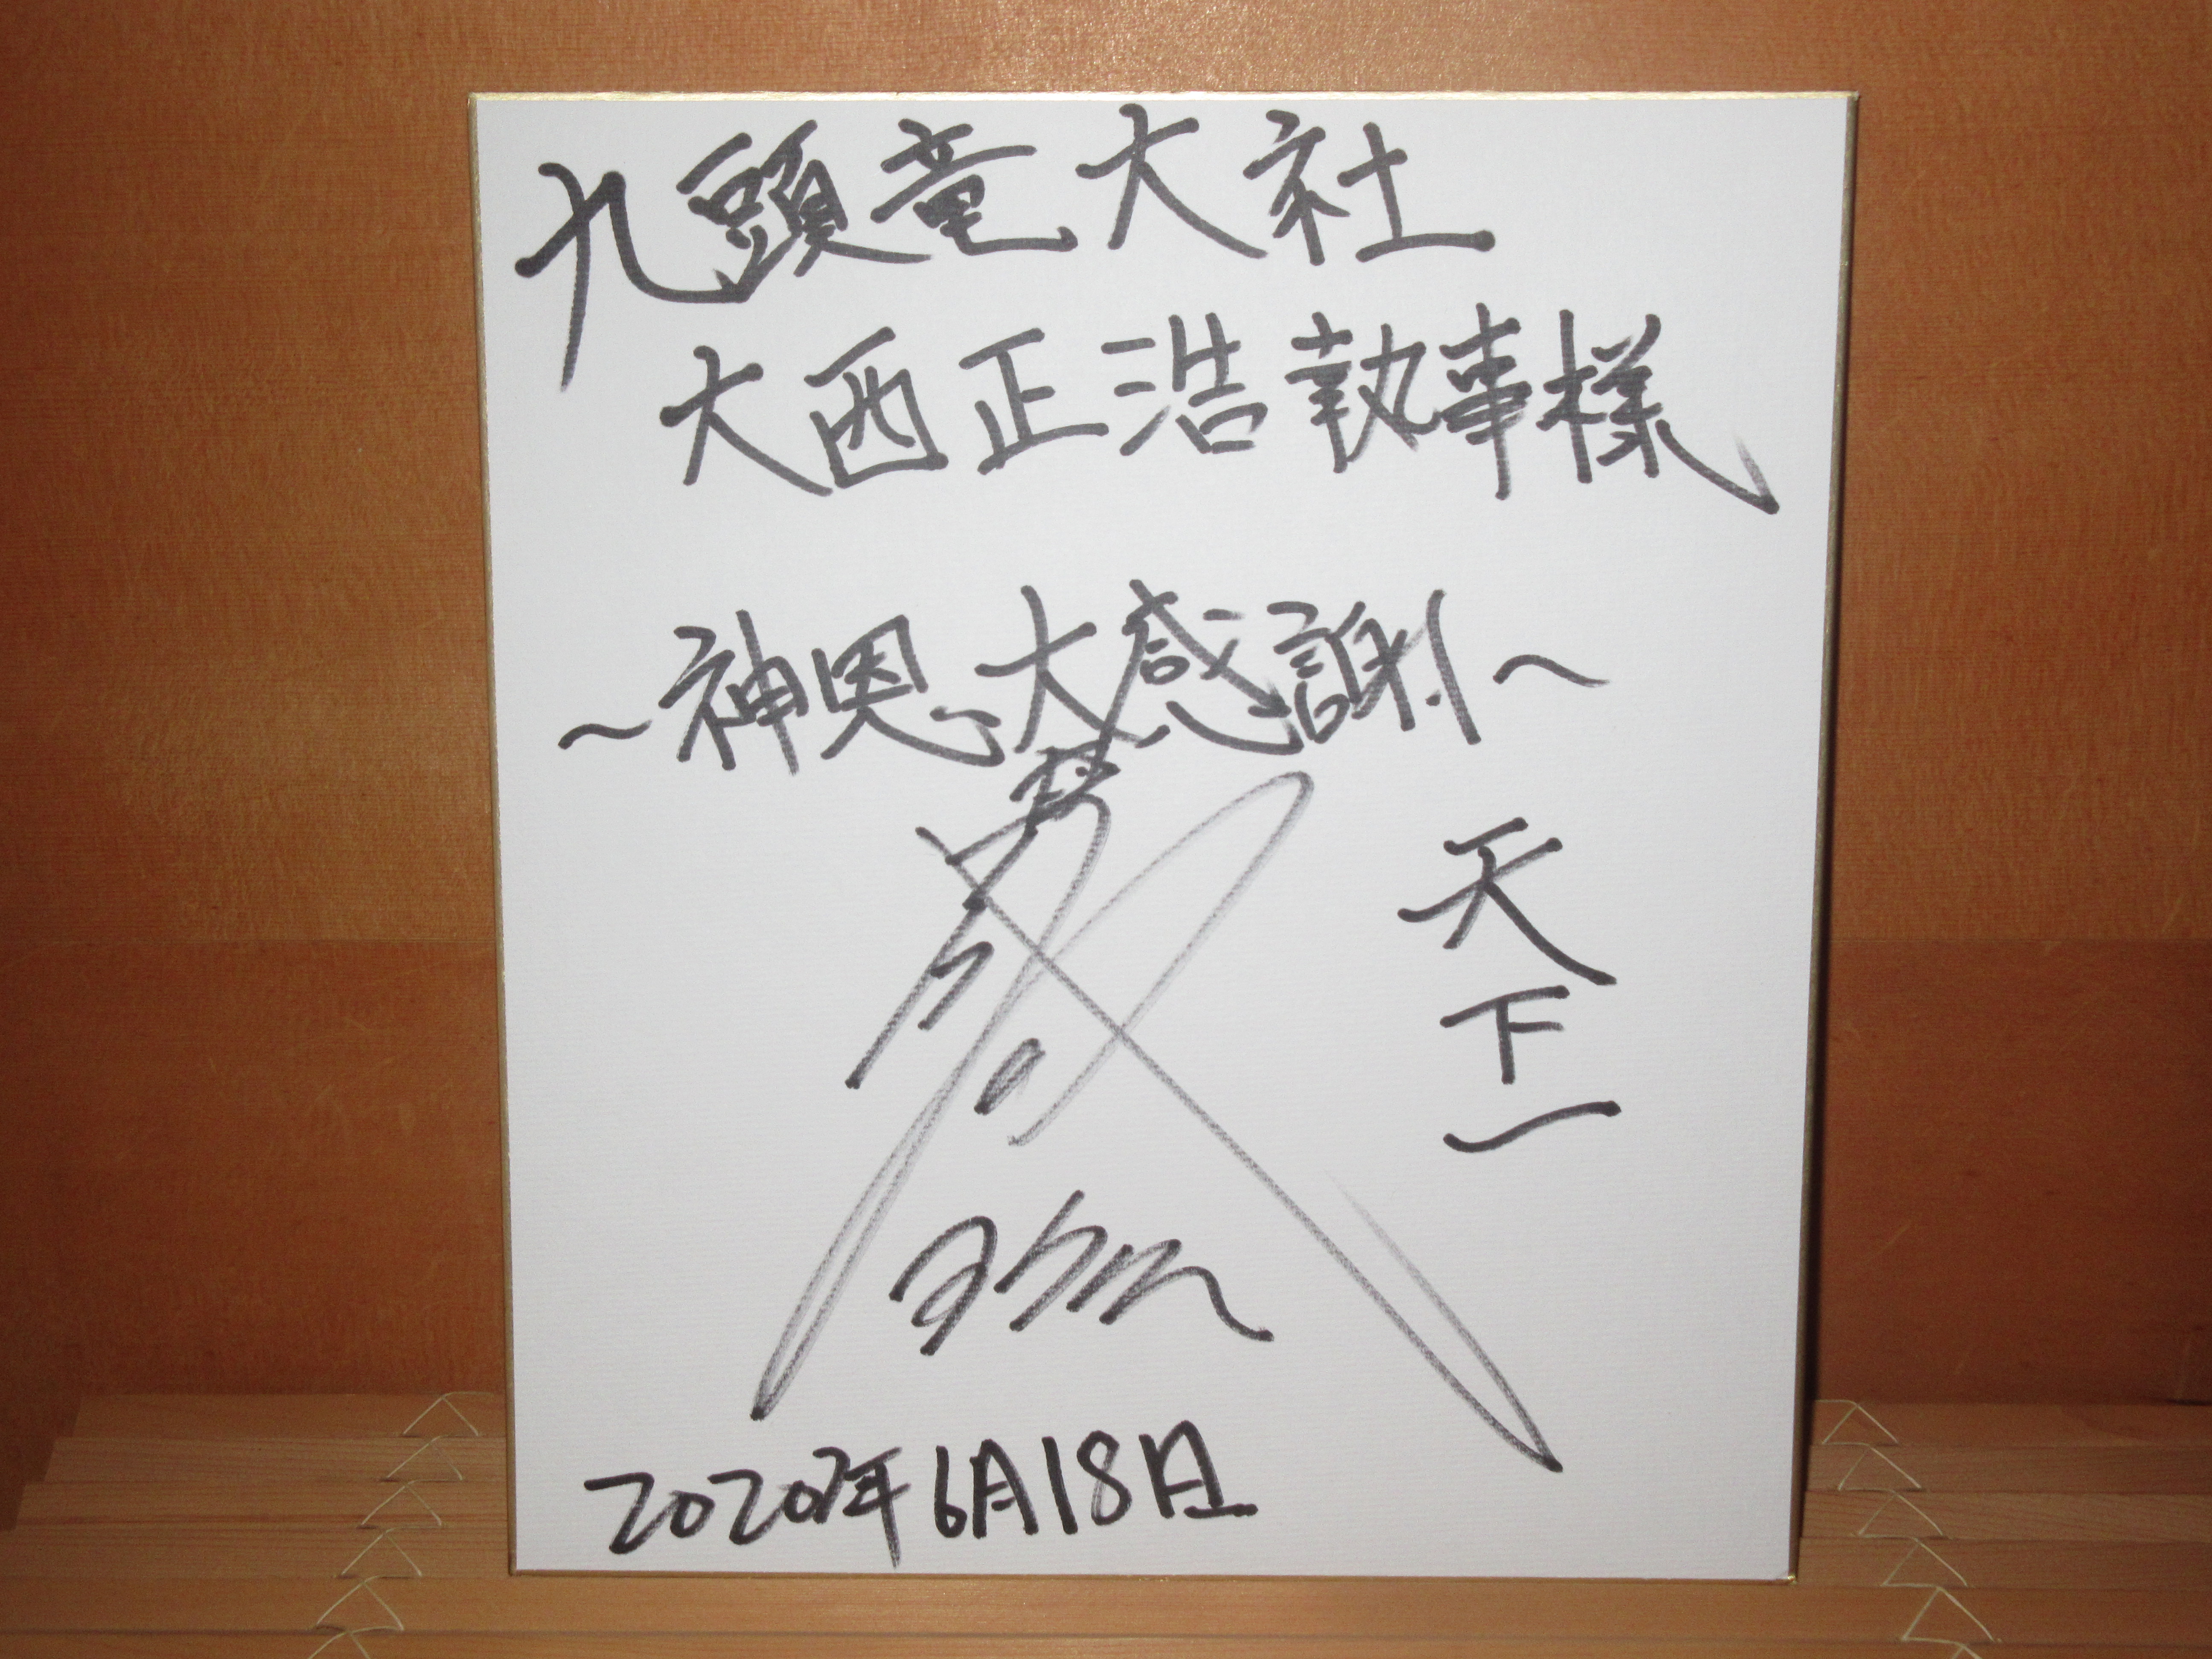 九頭竜大社
大西正浩執事様
～神恩大感謝！～
天下一
2020年6月18日